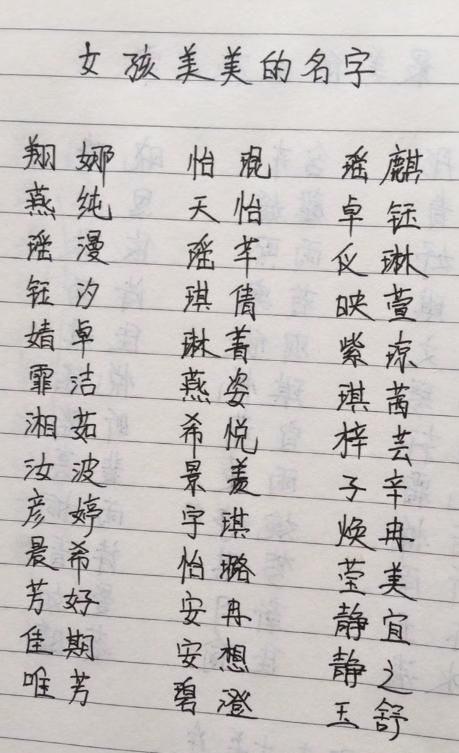 女孩美美的名字
翔娜 怡混 瑶麒
燕纯 天怡 卓钰
瑶漫 瑶芊 仪琳
钰汐 琪倩 映萱
婧卓 琳菁 紫琼
霏洁 燕姿 琪茜
湘茹 希悦 梓芸
汝波 景羡 子辛
彦婷 宇琪 焕冉
晨希 怡璐 莹美
芳好 安冉 静宜
佳期 安想 静之
唯芳 碧澄 玉舒